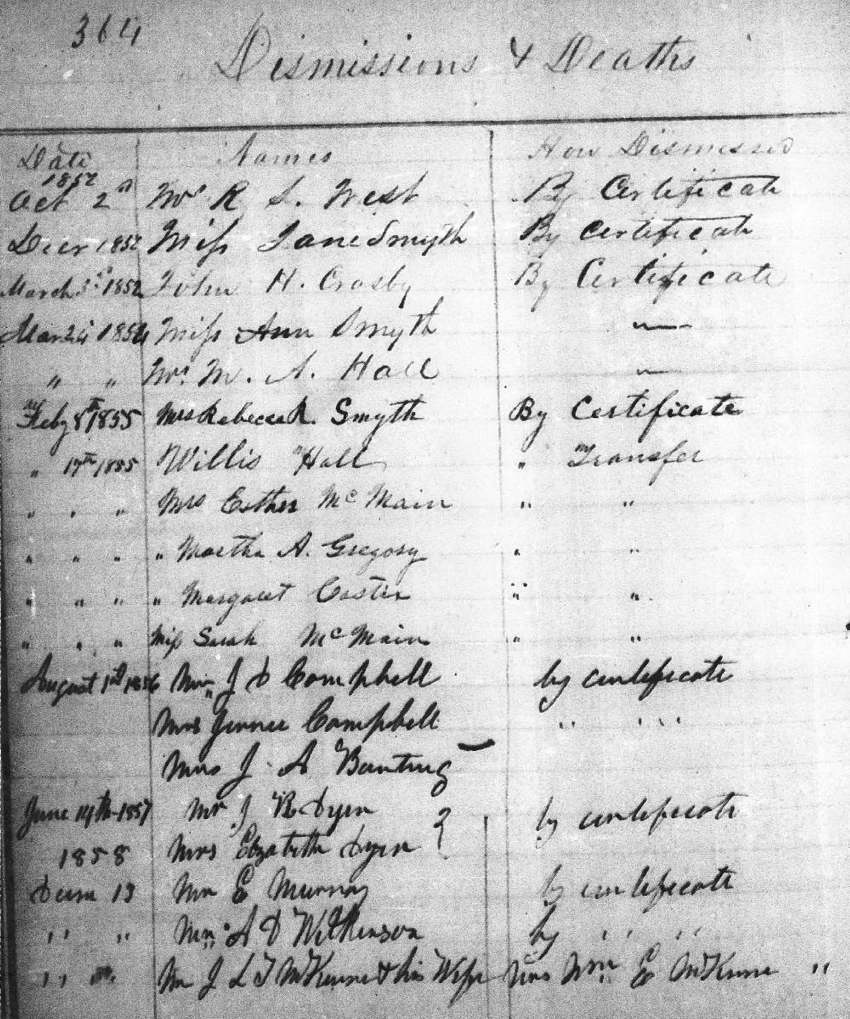 364
Dismissions & Deaths
Date Names How Dismissed
1852
Oct 2nd Mr R S. West By Certificate
Decr 1852 Miss Jane Smyth By Certificate
March 1852 John H. Crosby By Certificate
Mar 24 1854 Miss Ann Smyth —
" " M. A. Hall —
Feby 8th 1855 Mrs Rebecca R. Smyth By Certificate
" 17th 1855 Willis Hall " Transfer
" " " Mrs Esther McMain " "
" " " " Martha A. Gregory " "
" " " " Margaret Caster " "
" " " Miss Sarah McMain " "
August 1st 1856 Mr J D Campbell by certificate
Mrs Jennie Campbell " " "
Mrs J. A Banting
June 14th 1857 Mr J R Dyer } by certificate
1858 Mrs Elizabeth Dyer
13 Mr E Murray by certificate
" " A D Wilkinson by " "
" " Mr J L T McKinne & his Wife Mrs E McKinne "